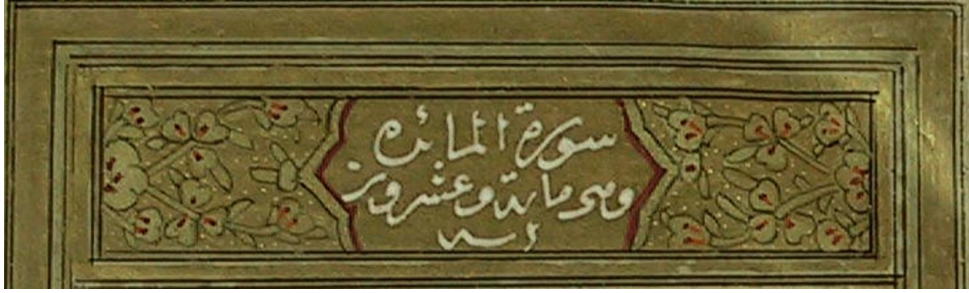 سورة المائده
وهى ماية وعشرون
اية